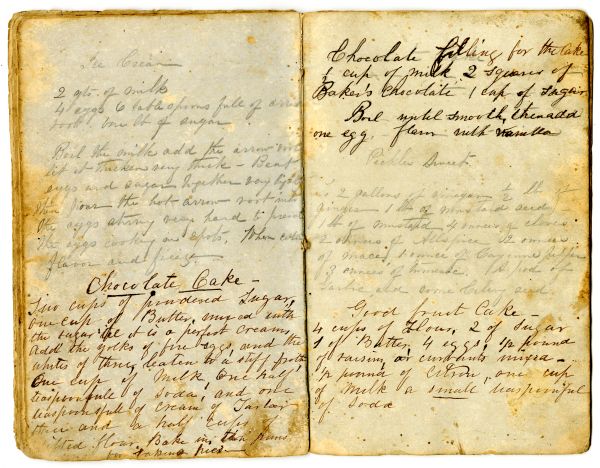 Ice Cream
2 qts. of milk
4 eggs 6 tablespoons full of arrow
root one lb of sugar
Boil the milk add the arrow root
let it thicken very thick - Beat
eggs and sugar together very light
then pour the hot arrow root into
the eggs stirring very hard to prevent
the eggs cooking in spots. When cold
flavor and freeze
Chocolate Cake -
Two cups of powdered Sugar,
one cup of Butter, mixed with
the sugar till it is a perfect cream,
add the yolks of five eggs, and the
whites of three, beaten to a stiff froth
One cup of Milk, One half
teaspoonfull of Soda, and one
teaspoonfull of Cream of Tartar
three and a half cups of
sifted flour, Bake in thin pans
Chocolate filling for the Cake
½ cup of milk, 2 squares of
Baker's Chocolate 1 cup of sugar
Boil until smooth, then add
one egg - flavor with vanilla
Pickle Sweet
2 gallons of vinegar ½ lb of
ginger 1 lb of mustard seed
lb of mustard 4 ounces of cloves
2 ounces of Allspice 2 ounces
of mace, 1 ounce of Cayenne pepper
3 ounces of tumeric
garlic and some Celery seed
Good fruit Cake -
4 cups of Flour, 2 of Sugar
1 of Butter, 4 eggs, ½ pound
of raisins or currants mixed -
¼ pound of citron, one cup
of Milk a small teaspoonful
of Soda